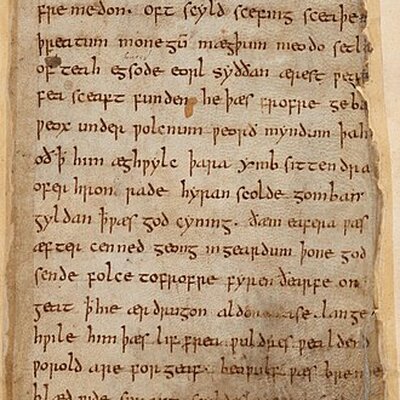 fremedon. oft scyld scefing sceaþe
þreatum monegū mægþum meodo setla
of teah egsode eorl syððan ærest ƿear
fea sceaft funden he þæs frofre geba
ƿeox under ƿolcnum ƿeorð myndum þah
oð ꝥ him æghƿylc þara ymb sittendra
ofer hron rade hyran scolde gomban
gyldan ꝥ ƿæs god cyning. ðæm eafera ƿæs
æfter cenned geong in geardum þone god
sende folce tofrofre fyren ðearfe on
geat ꝥ hie ær drugon aldor ase. lange
hƿile him þæs lif frea ƿuldres ƿealdend
ƿorold are for geaf. beoƿulf ƿæs breme
blæd ƿide sprang